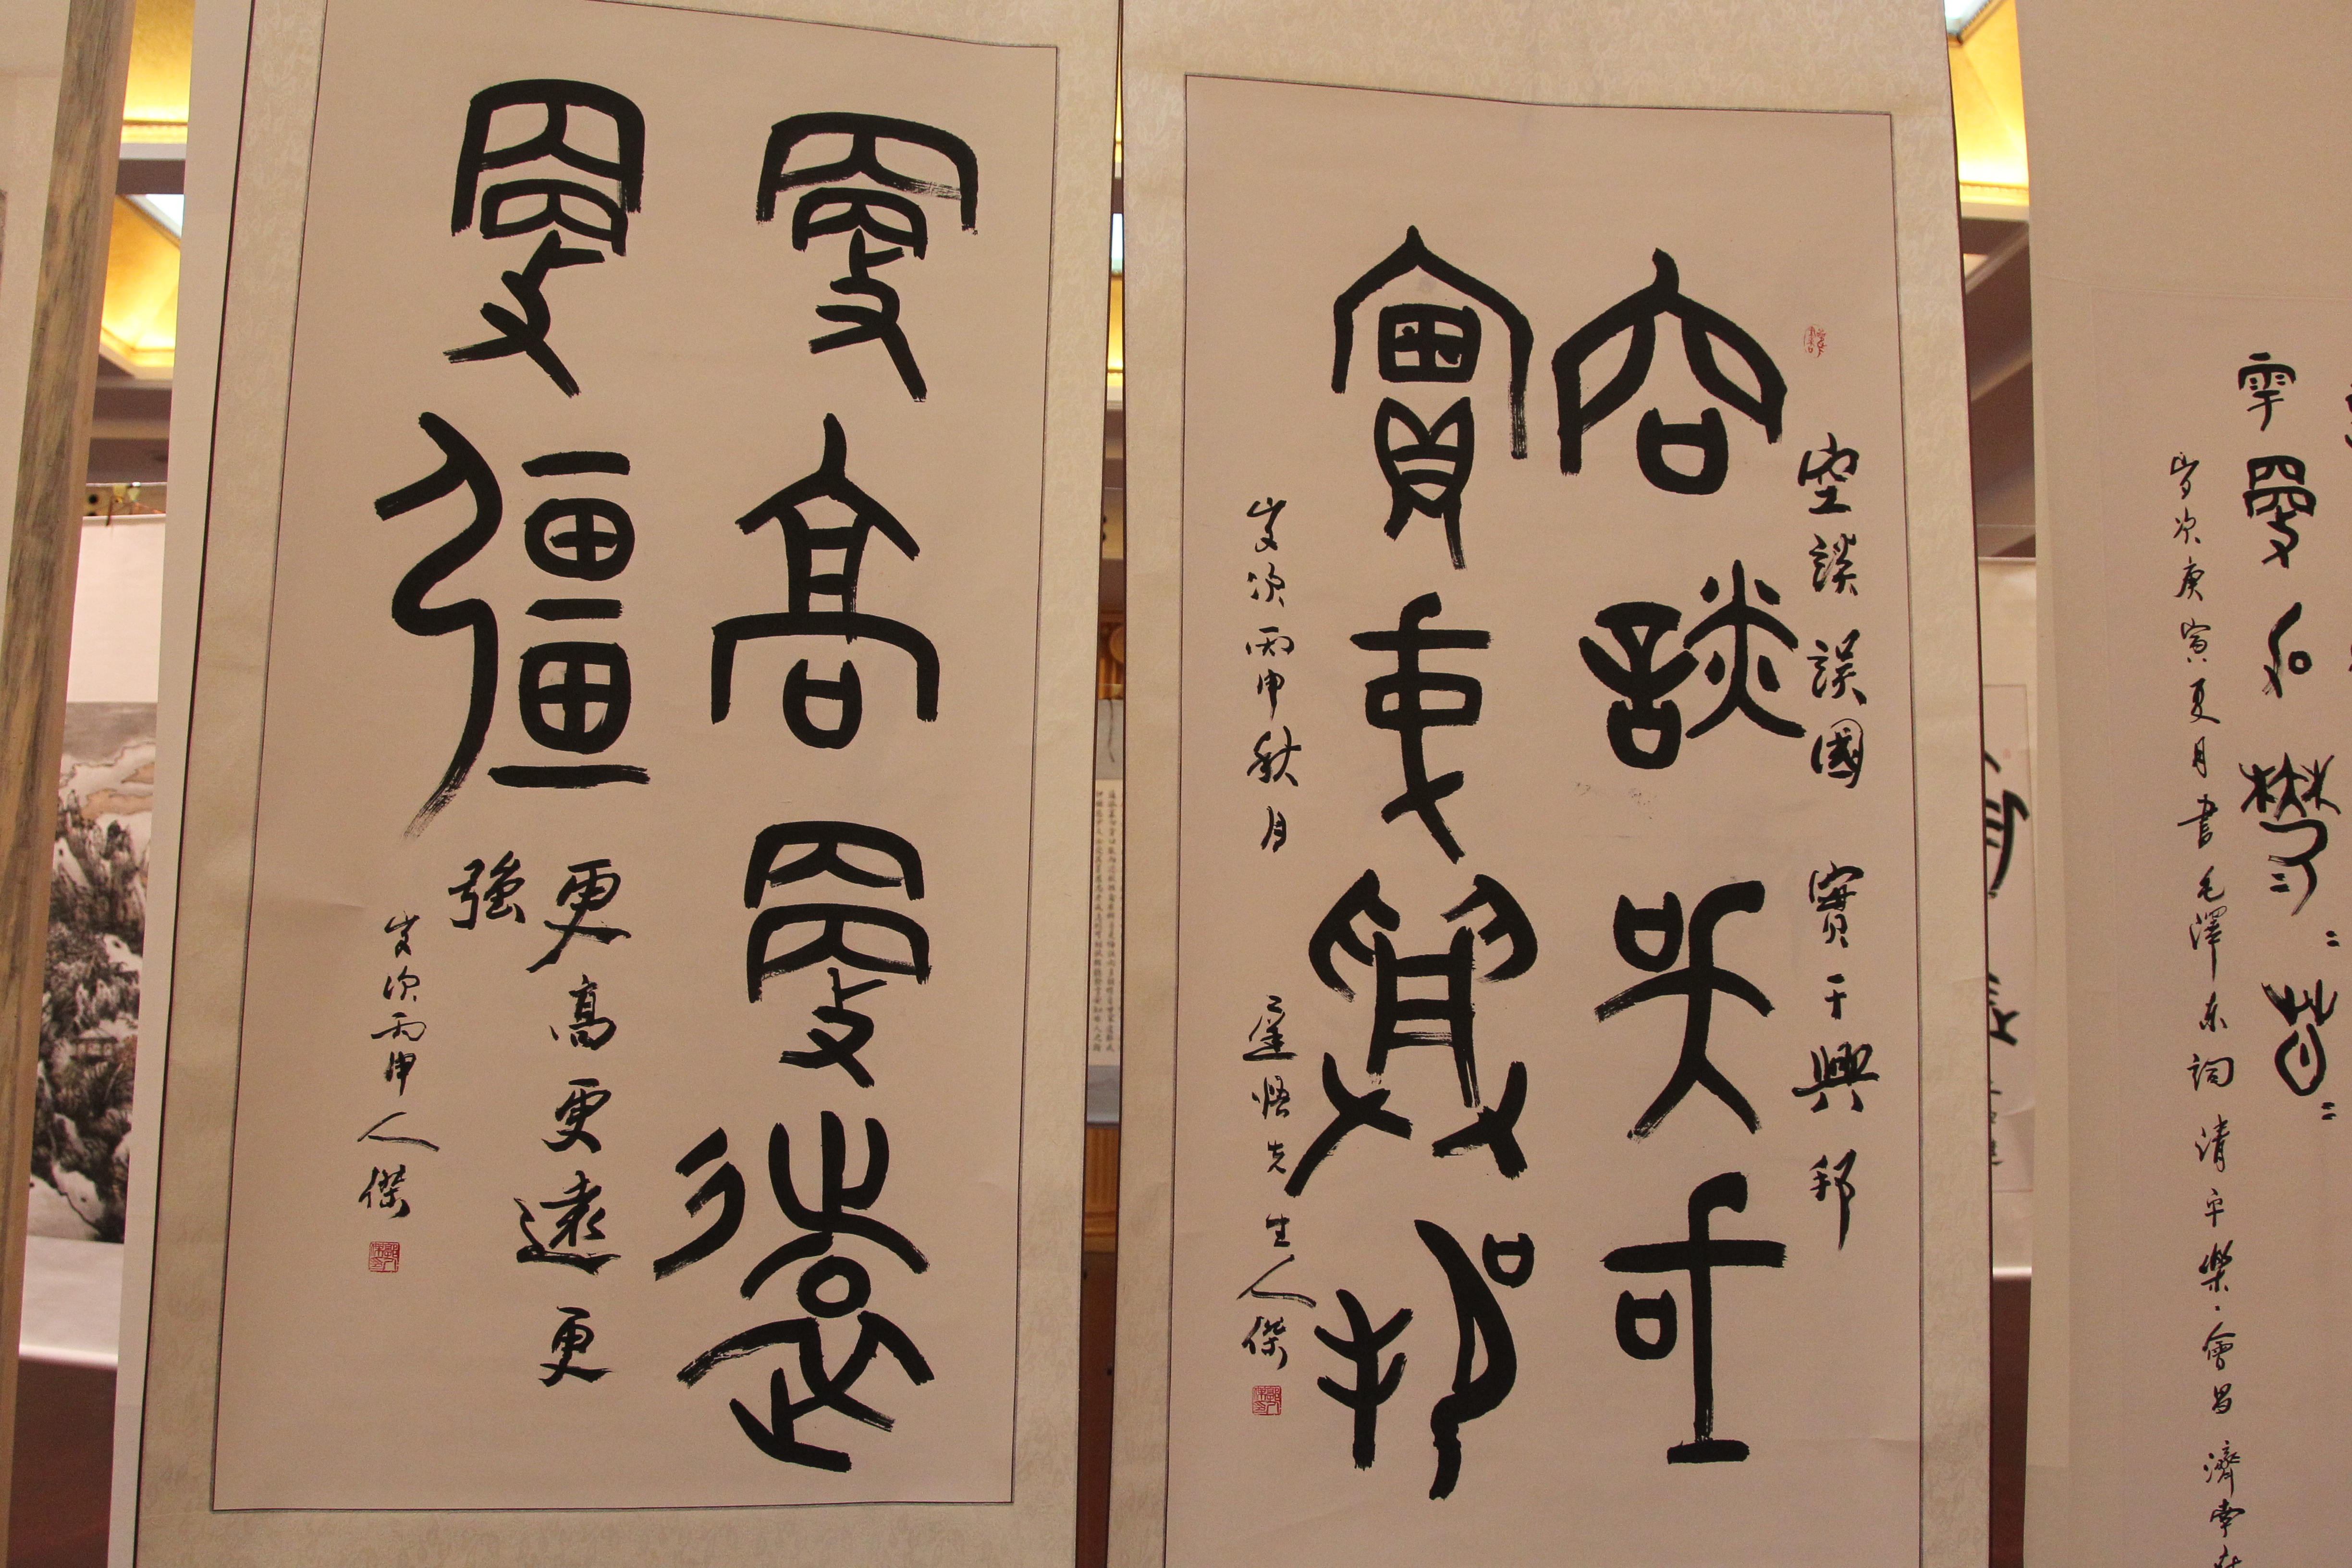 雩更加鬱鬱蔥蔥
岁次庚寅夏月書毛澤东詞清平樂·會昌濟南
空談誤國 實干興邦
空談誤國
實干興邦
歲次丙申秋月 遲悟先生人傑
更高更遠
更彊
更高更遠更
強
歲次丙申人傑